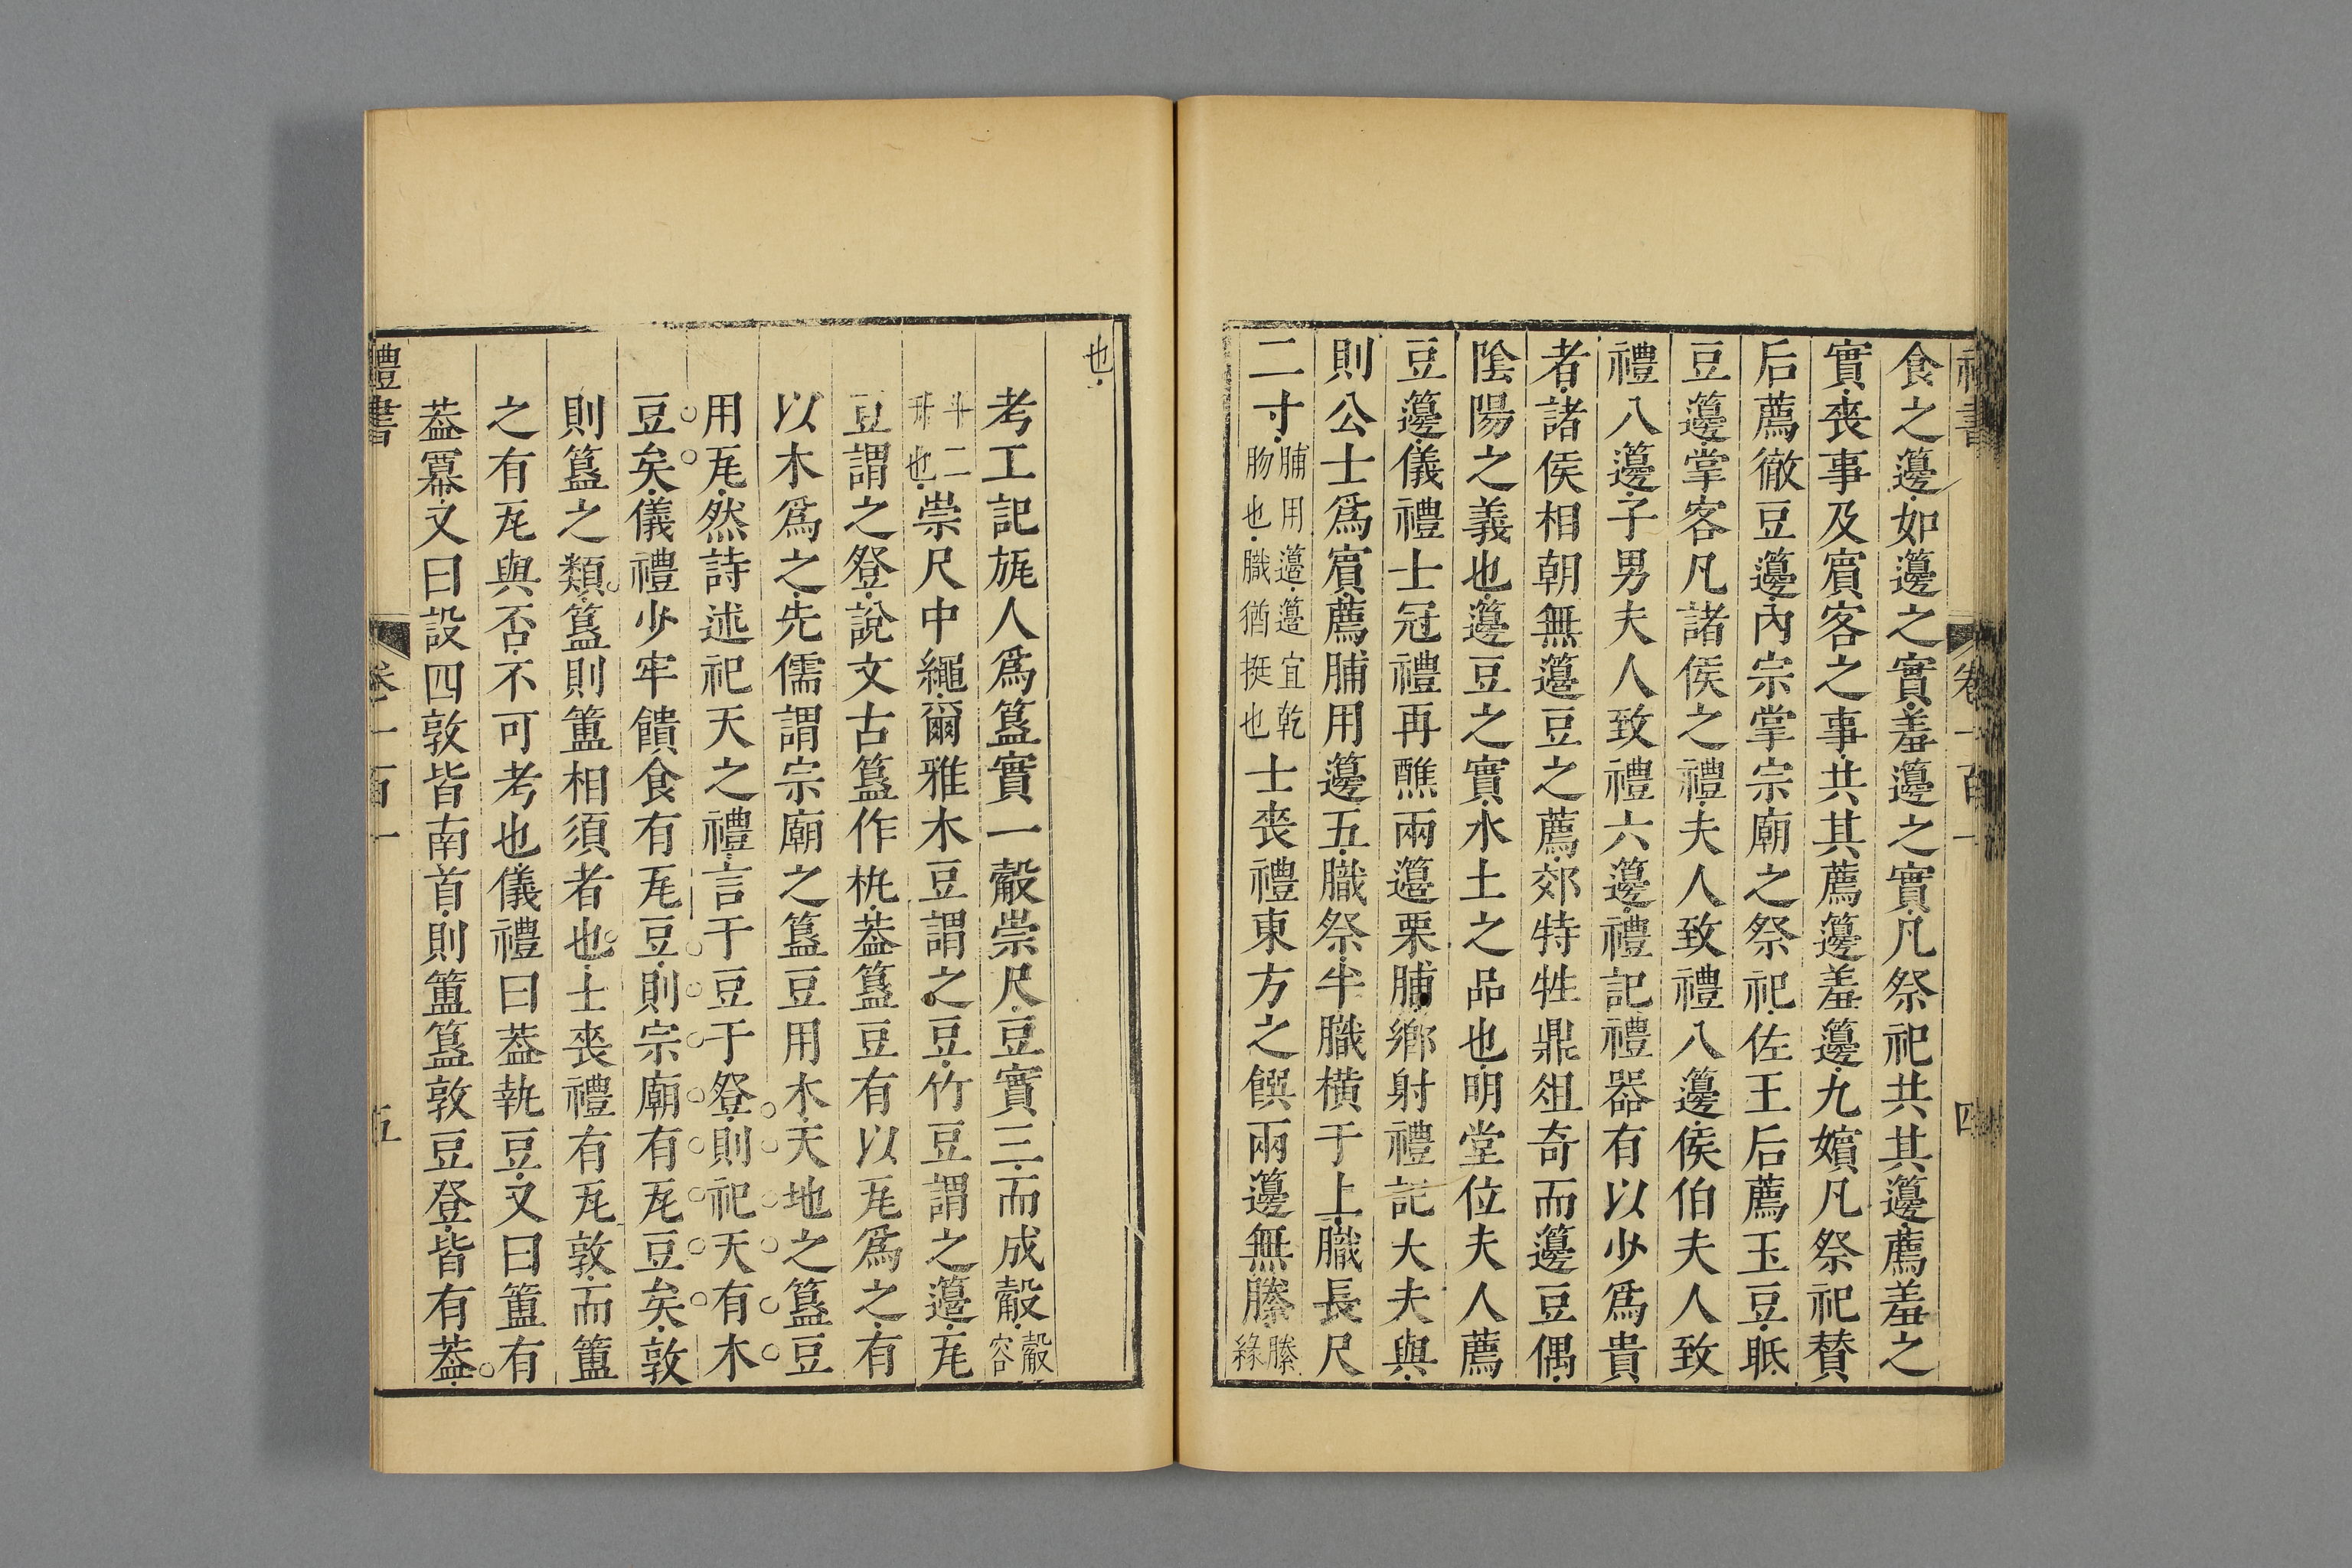 禮書 卷一百一 四
食之籩如籩之實羞籩之實凡祭祀共其籩薦羞之
實喪事及賔客之事共其薦籩羞籩九嬪凡祭祀賛
后薦徹豆籩內宗掌宗廟之祭祀佐王后薦玉豆眡
豆籩掌客凡諸侯之禮夫人致禮八籩侯伯夫人致
禮八籩子男夫人致禮六籩禮記禮器有以少爲貴
者諸侯相朝無籩豆之薦郊特牲鼎俎奇而籩豆偶
陰陽之義也籩豆之實水土之品也明堂位夫人薦
豆籩儀禮士冠禮再醮兩籩栗脯鄉射禮記大夫與
則公士爲賔薦脯用籩五膱祭半膱橫于上膱長尺
二寸脯用籩籩宜乾肕也膱猶挺也士喪禮東方之饌兩籩無縢縢緣
也
考工記旊人爲簋實一觳崇尺豆實三而成觳觳容
斗二升也崇尺中繩爾雅木豆謂之豆竹豆謂之籩瓦
豆謂之登說文古簋作朹葢簋豆有以瓦爲之有
以木爲之先儒謂宗廟之簋豆用木天地之簋豆
用瓦然詩述祀天之禮言于豆于登則祀天有木
豆矣儀禮少牢饋食有瓦豆則宗廟有瓦豆矣敦
則簋之類簋則簠相須者也士喪禮有瓦敦而簠
之有瓦與否不可考也儀禮曰葢執豆又曰簠有
葢冪又曰設四敦皆南首則簠簋敦豆登皆有葢
禮書 卷一百一 五